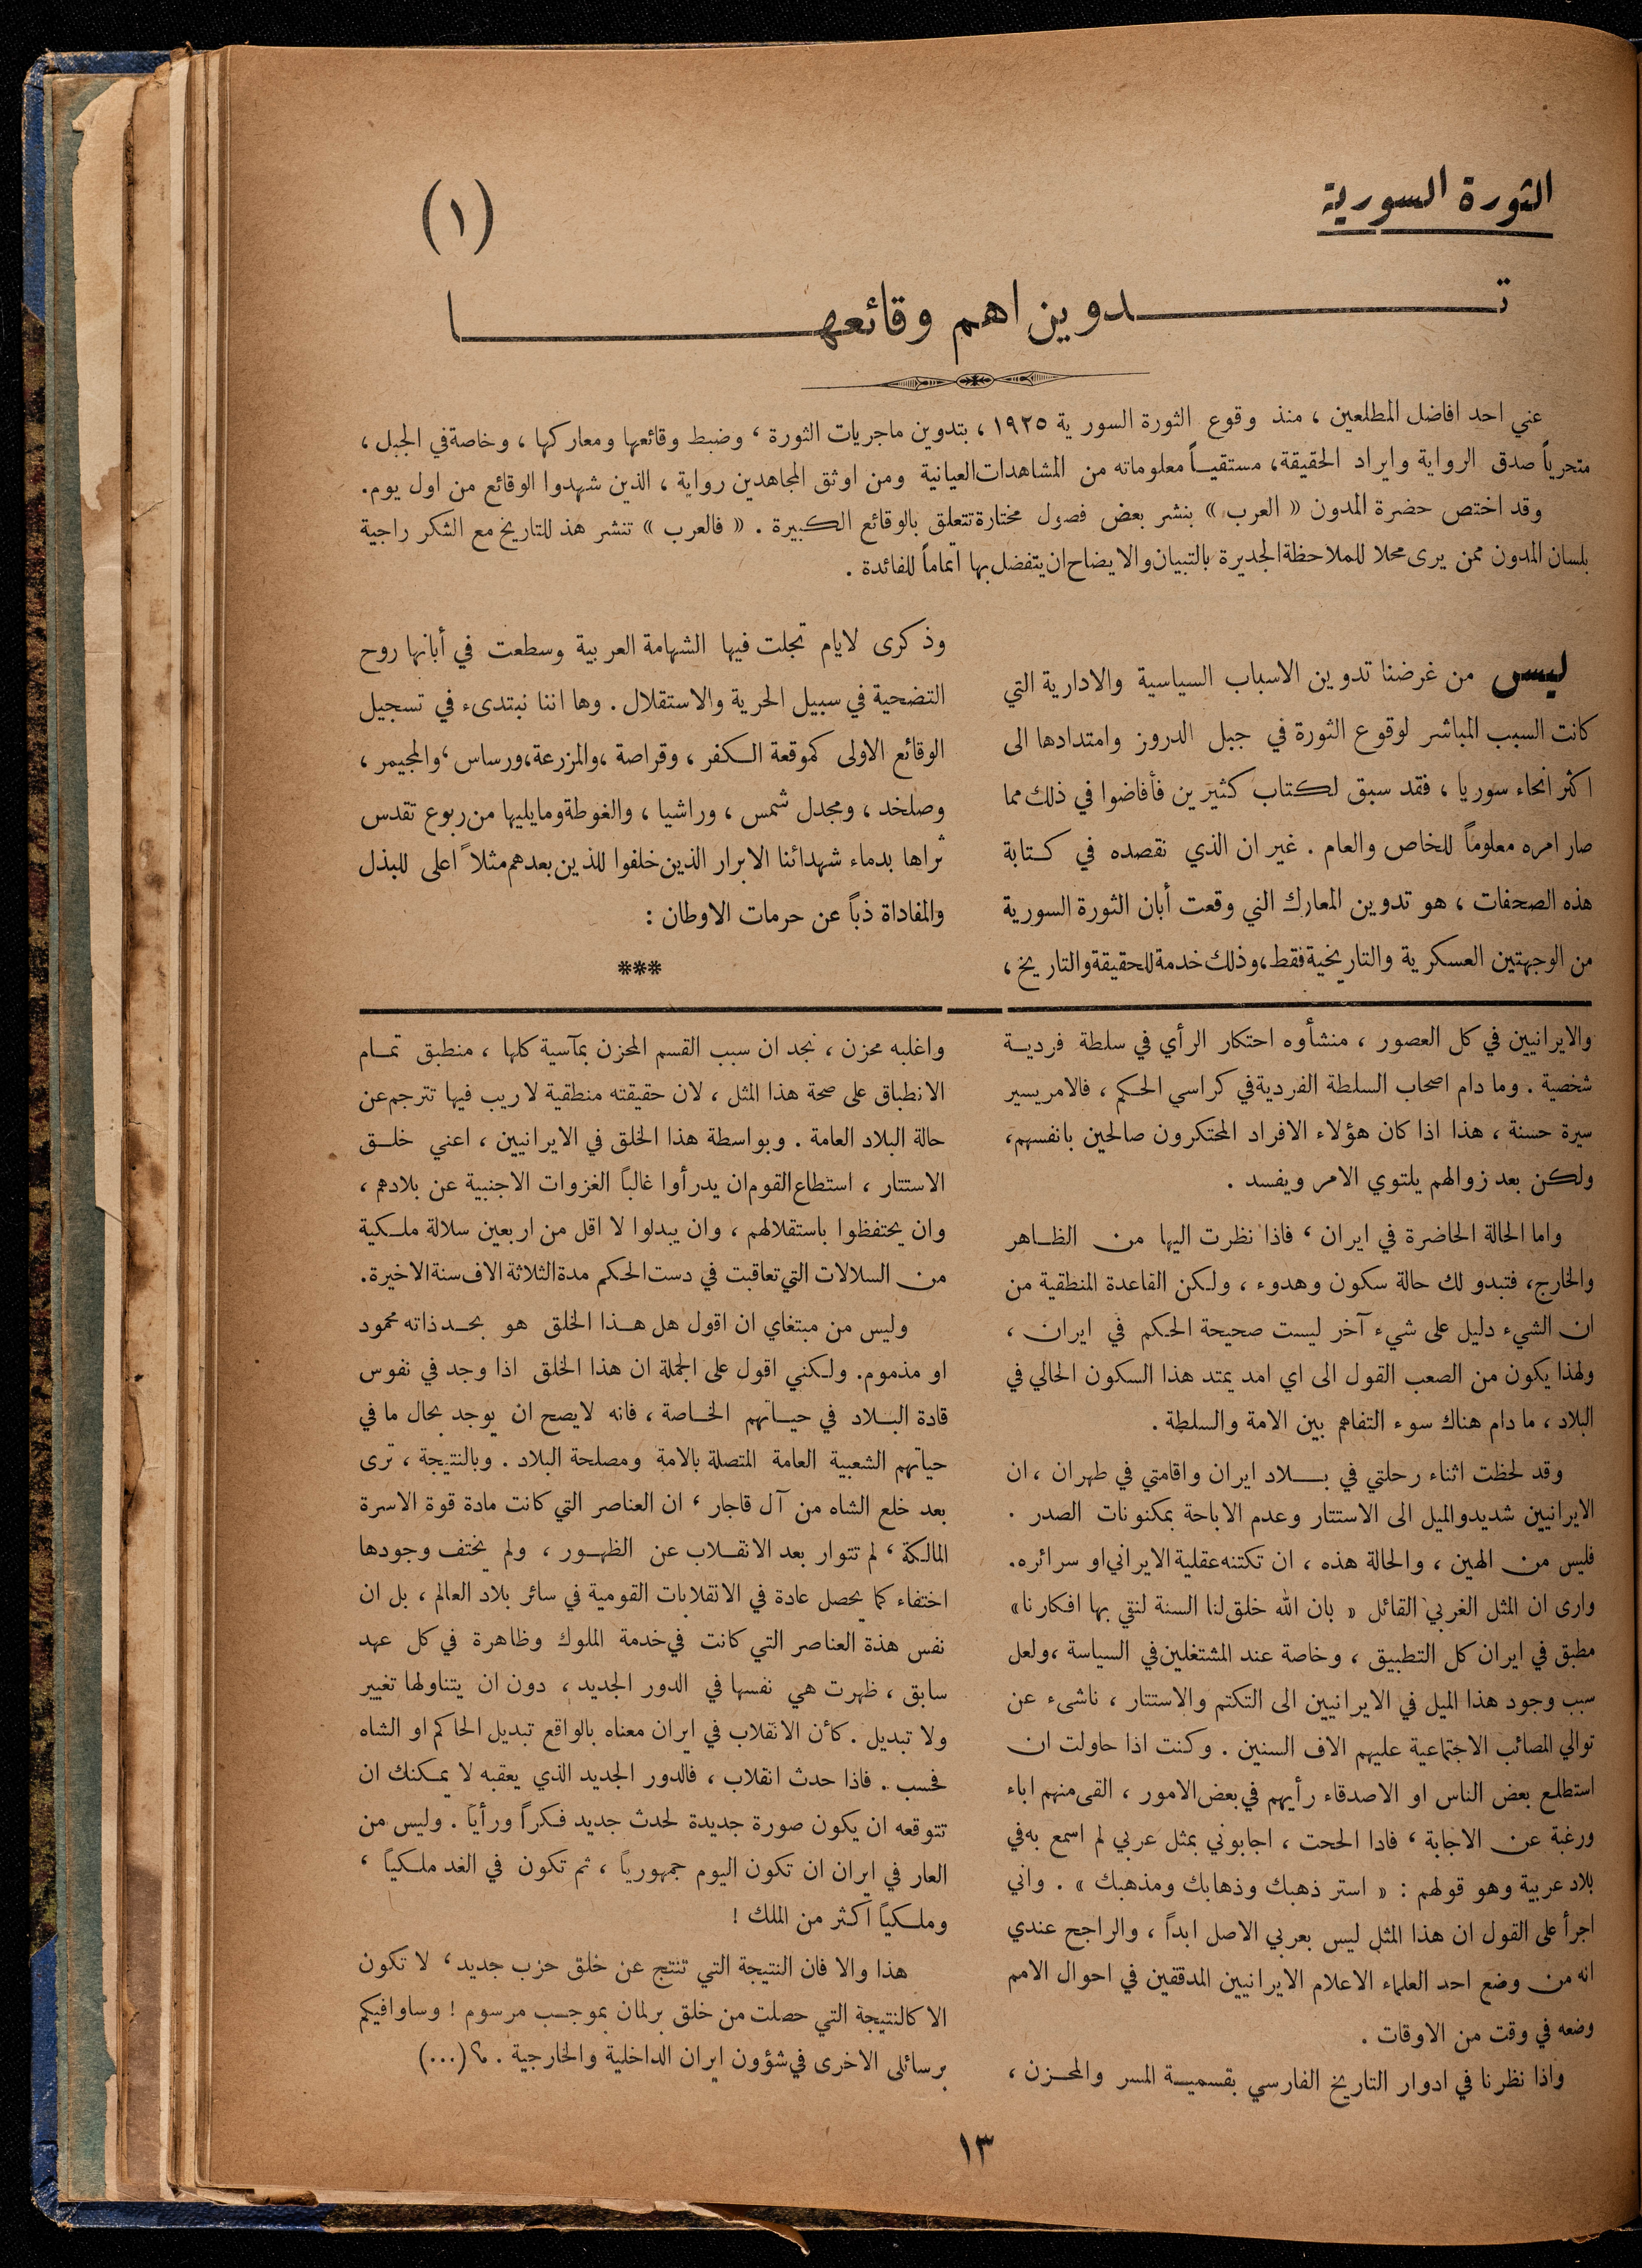 الثورة السورية
(١)
تدوين اهم وقائعها
عني احد افاضل المطلعين ، منذ وقوع الثورة السورية ١٩٢٥ ، بتدوين ماجريات الثورة ، وضبط وقائعها ومعاركها ، وخاصة في الجبل ،
متحرياً صدق الرواية وايراد الحقيقة، مستقيـاً معلوماته من المشاهدات العيانية ومن اوثق المجاهدين رواية ، الذين شهدوا الوقائع من اول يوم.
وقد اختص حضرة المدون « العرب » بنشر بعض فصول مختارة تتعلق بالوقائع الكبيرة . « فالعرب » تنشر هذ للتاريخ مع الشكر راجية
بلسان المدون ممن يرى محلا للملاحظة الجديرة بالتبيان والايضاح ان يتفضل بها اتماماً للفائدة .
ليس من غرضنا تدوين الاسباب السياسية والادارية التي
كانت السبب المباشر لوقوع الثورة في جبل الدروز وامتدادها الى
اكثر انحاء سوريا ، فقد سبق لكتاب كثيرين فأفاضوا في ذلك مما
صار امره معلوماً للخاص والعام . غير ان الذي نقصده في كـتابة
هذه الصحفات ، هو تدوين المعارك التي وقعت أبان الثورة السورية
من الوجهتين العسكرية والتاريخية فقط، وذلك خدمة للحقيقة والتاريخ ،
وذكرى لايام تجلت فيها الشهامة العربية وسطعت في أبانها روح
التضحية في سبيل الحرية والاستقلال . وها اننا نبتدىء في تسجيل
الوقائع الاولى كموقعة الكفر ، وقراصة ،والمزرعة،ورساس ،والمجيمر ،
وصلخد ، ومجدل شمس ، وراشيا ، والغوطة ومايليها من ربوع تقدس
ثراها بدماء شهدائنا الابرار الذين خلفوا للذين بعدهم مثلاً اعلى للبذل
والمفاداة ذباً عن حرمات الاوطان :
***
والايرانيين في كل العصور ، منشأوه احتكار الرأي في سلطة فرديـة
شخصية . وما دام اصحاب السلطة الفردية في كراسي الحكم ، فالامر يسير
سيرة حسنة ، هذا اذا كان هؤلاء الافراد المحتكرون صالحين بانفسهم،
ولكن بعد زوالهم يلتوي الامر ويفسد .
واما الحالة الحاضرة في ايران ، فاذا نظرت اليها من الظـاهر
والخارج، فتبدو لك حالة سكون وهدوء ، ولكن القاعدة المنطقية من
ان الشيء دليل على شيء آخر ليست صحيحة الحكم في ايران ،
ولهذا يكون من الصعب القول الى اي امد يمتد هذا السكون الحالي في
البلاد ، ما دام هناك سوء التفاهم بين الامة والسلطة .
وقد لحظت اثناء رحلتي في بـــلاد ايران واقامتي في طهران ، ان
الايرانيين شديدو الميل الى الاستتار وعدم الاباحة بمكنونات الصدر .
فليس من الهين ، والحالة هذه ، ان تكتنه عقلية الايراني او سرائره.
وارى ان المثل الغربي القائل « بان الله خلق لنا السنة لنتقي بها افكارنا»
مطبق في ايران كل التطبيق ، وخاصة عند المشتغلين في السياسة ،ولعل
سبب وجود هذا الميل في الايرانيين الى التكتم والاستتار ، ناشىء عن
توالي المصائب الاجتماعية عليهم الاف السنين . وكنت اذا حاولت ان
استطلع بعض الناس او الاصدقاء رأيهم في بعض الامور ، القى منهم اباء
ورغبة عن الاجابة ، فادا الححت ، اجابوني بمثل عربي لم اسمع به في
بلاد عربية وهو قولهم : « استر ذهبك وذهابك ومذهبك » . واني
اجرأ على القول ان هذا المثل ليس بعربي الاصل ابداً ، والراجح عندي
انه من وضع احد العلماء الاعلام الايرانيين المدققين في احوال الامم
وضعه في وقت من الاوقات .
واذا نظرنا في ادوار التاريخ الفارسي بقسميـة المسر والمحـزن ،
واغلبه محزن ، نجد ان سبب القسم المحزن بمآسية كلها ، منطبق تمـام
الانطباق على صحة هذا المثل ، لان حقيقته منطقية لا ريب فيها تترجم عن
حالة البلاد العامة . وبواسطة هذا الخلق في الايرانيين ، اعني خلـق
الاستتار ، استطاع القوم ان يدرأوا غالباً الغزوات الاجنبية عن بلادهم ،
وان يحتفظوا باستقلالهم ، وان يبدلوا لا اقل من اربعين سلالة ملكية
من السلالات التي تعاقبت في دست الحكم مدة الثلاثة الاف سنة الاخيرة.
وليس من مبتغاي ان اقول هل هـذا الخلق هو بحـد ذاته محمود
او مذموم. ولكني اقول على الجملة ان هذا الخلق اذا وجد في نفوس
قادة البـلاد في حيـاتهم الخـاصة ، فانه لايصح ان يوجد بحال ما في
حياتهم الشعبية العامة المتصلة بالامة ومصلحة البلاد . وبالنتيجة ، ترى
بعد خلع الشاه من آل قاجار ، ان العناصر التي كانت مادة قوة الاسرة
المالكة ، لم تتوار بعد الانقـلاب عن الظهـور ، ولم يختف وجودها
اختفاء كما يحصل عادة في الانقلابات القومية في سائر بلاد العالم ، بل ان
نفس هذة العناصر التي كانت في خدمة الملوك وظاهرة في كل عهد
سابق ، ظهرت هي نفسها في الدور الجديد ، دون ان يتناولها تغيير
ولا تبديل . كأن الانقلاب في ايران معناه بالواقع تبديل الحاكم او الشاه
فحسب . فاذا حدث انقلاب ، فالدور الجديد الذي يعقبه لا يمكنك ان
تتوقعه ان يكون صورة جديدة لحدث جديد فكراً ورأياً . وليس من
العار في ايران ان تكون اليوم جمهورياً ، ثم تكون في الغد ملكياً ،
وملكياً اكثر من الملك !
هذا والا فان النتيجة التي تنتج عن خلق حزب جديد ، لا تكون
الا كالنتيجة التي حصلت من خلق برلمان بموجـب مرسوم ! وساوافيكم
برسائلى الاخرى في شؤون ايران الداخلية والخارجية . ؟ (...)
١٣